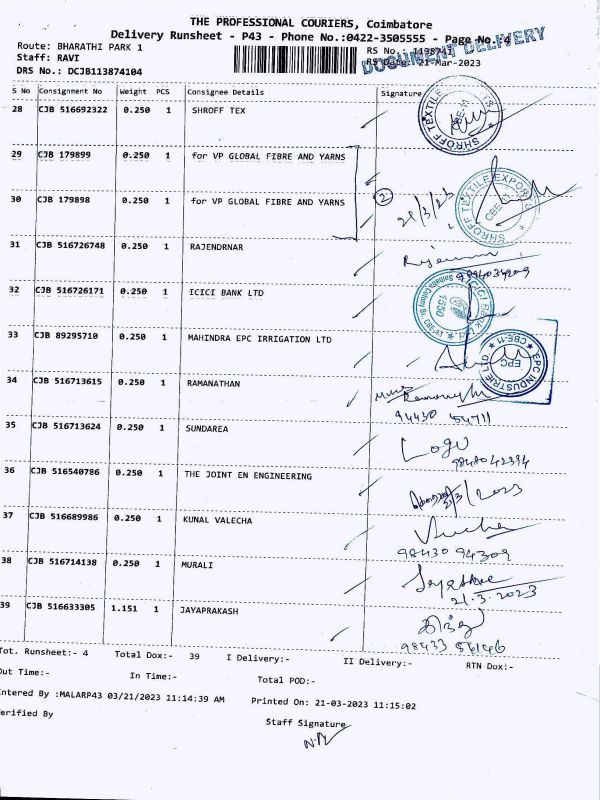 THE PROFESSIONAL COURIERS, Coimbatore
Delivery Runsheet - P43 - Phone No.:0422-3505555 - Page No.:4
DOCUMENT DELIVERY
Route: BHARATHI PARK 1
Staff: RAVI
DRS No.: DCJB113874104
RS Date: 21-Mar-2023
S No Consignment No Weight PCS Consignee Details Signature
28 CJB 516692322 0.250 1 SHROFF TEX
SHROFF TEXTILE CBE-11
29 CJB 179899 0.250 1 for VP GLOBAL FIBRE AND YARNS
30 CJB 179898 0.250 1 for VP GLOBAL FIBRE AND YARNS
2 21/3/23
SHROFF TEXTILE EXPORTS CBE-11
31 CJB 516726748 0.250 1 RAJENDRNAR
32 CJB 516726171 0.250 1 ICICI BANK LTD
ICICI Bank 1550 Saibaba Colony Br. CBE-11
33 CJB 89295710 0.250 1 MAHINDRA EPC IRRIGATION LTD
EPC INDUSTRIE LTD EPC CBE-11
34 CJB 516713615 0.250 1 RAMANATHAN
94430 54711
35 CJB 516713624 0.250 1 SUNDAREA
Logu
36 CJB 516540786 0.250 1 THE JOINT EN ENGINEERING
21/3/2023
37 CJB 516689986 0.250 1 KUNAL VALECHA
98430 94309
38 CJB 516714138 0.250 1 MURALI
21.3.2023
39 CJB 516633305 1.151 1 JAYAPRAKASH
98433 56146
Tot. Runsheet:- 4 Total Dox:- 39 I Delivery:- II Delivery:- RTN Dox:-
Out Time:- In Time:- Total POD:-
ntered By :MALARP43 03/21/2023 11:14:39 AM Printed On: 21-03-2023 11:15:02
erified By Staff Signature